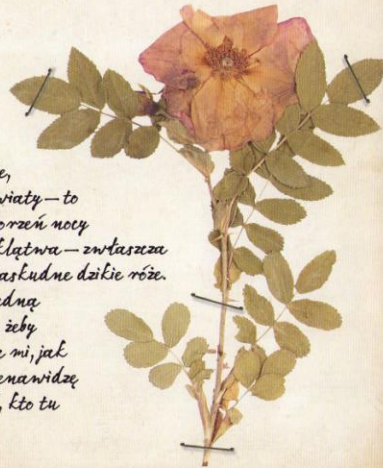 e,
wiaty – to
orzeń nocy
klątwa – zwłaszcza
askudne dzikie róże.
dną
żeby
e mi, jak
enawidzę
, kto tu